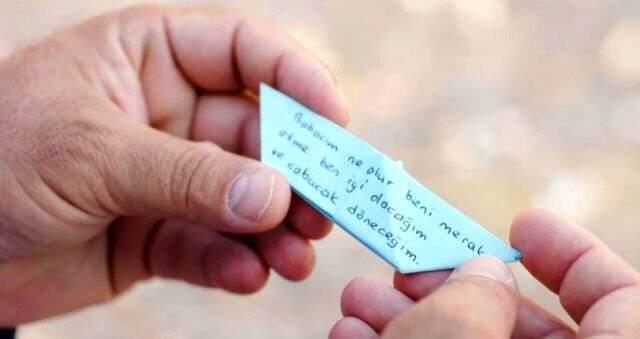 Babacım ne olur beni merak
etme ben iyi olacağım
ve çabucak döneceğim.